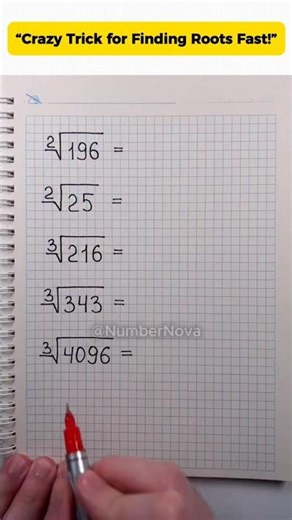 “Crazy Trick for Finding Roots Fast!”
²√196 =
²√25 =
³√216 =
³√343 =
@NumberNova
³√4096 =